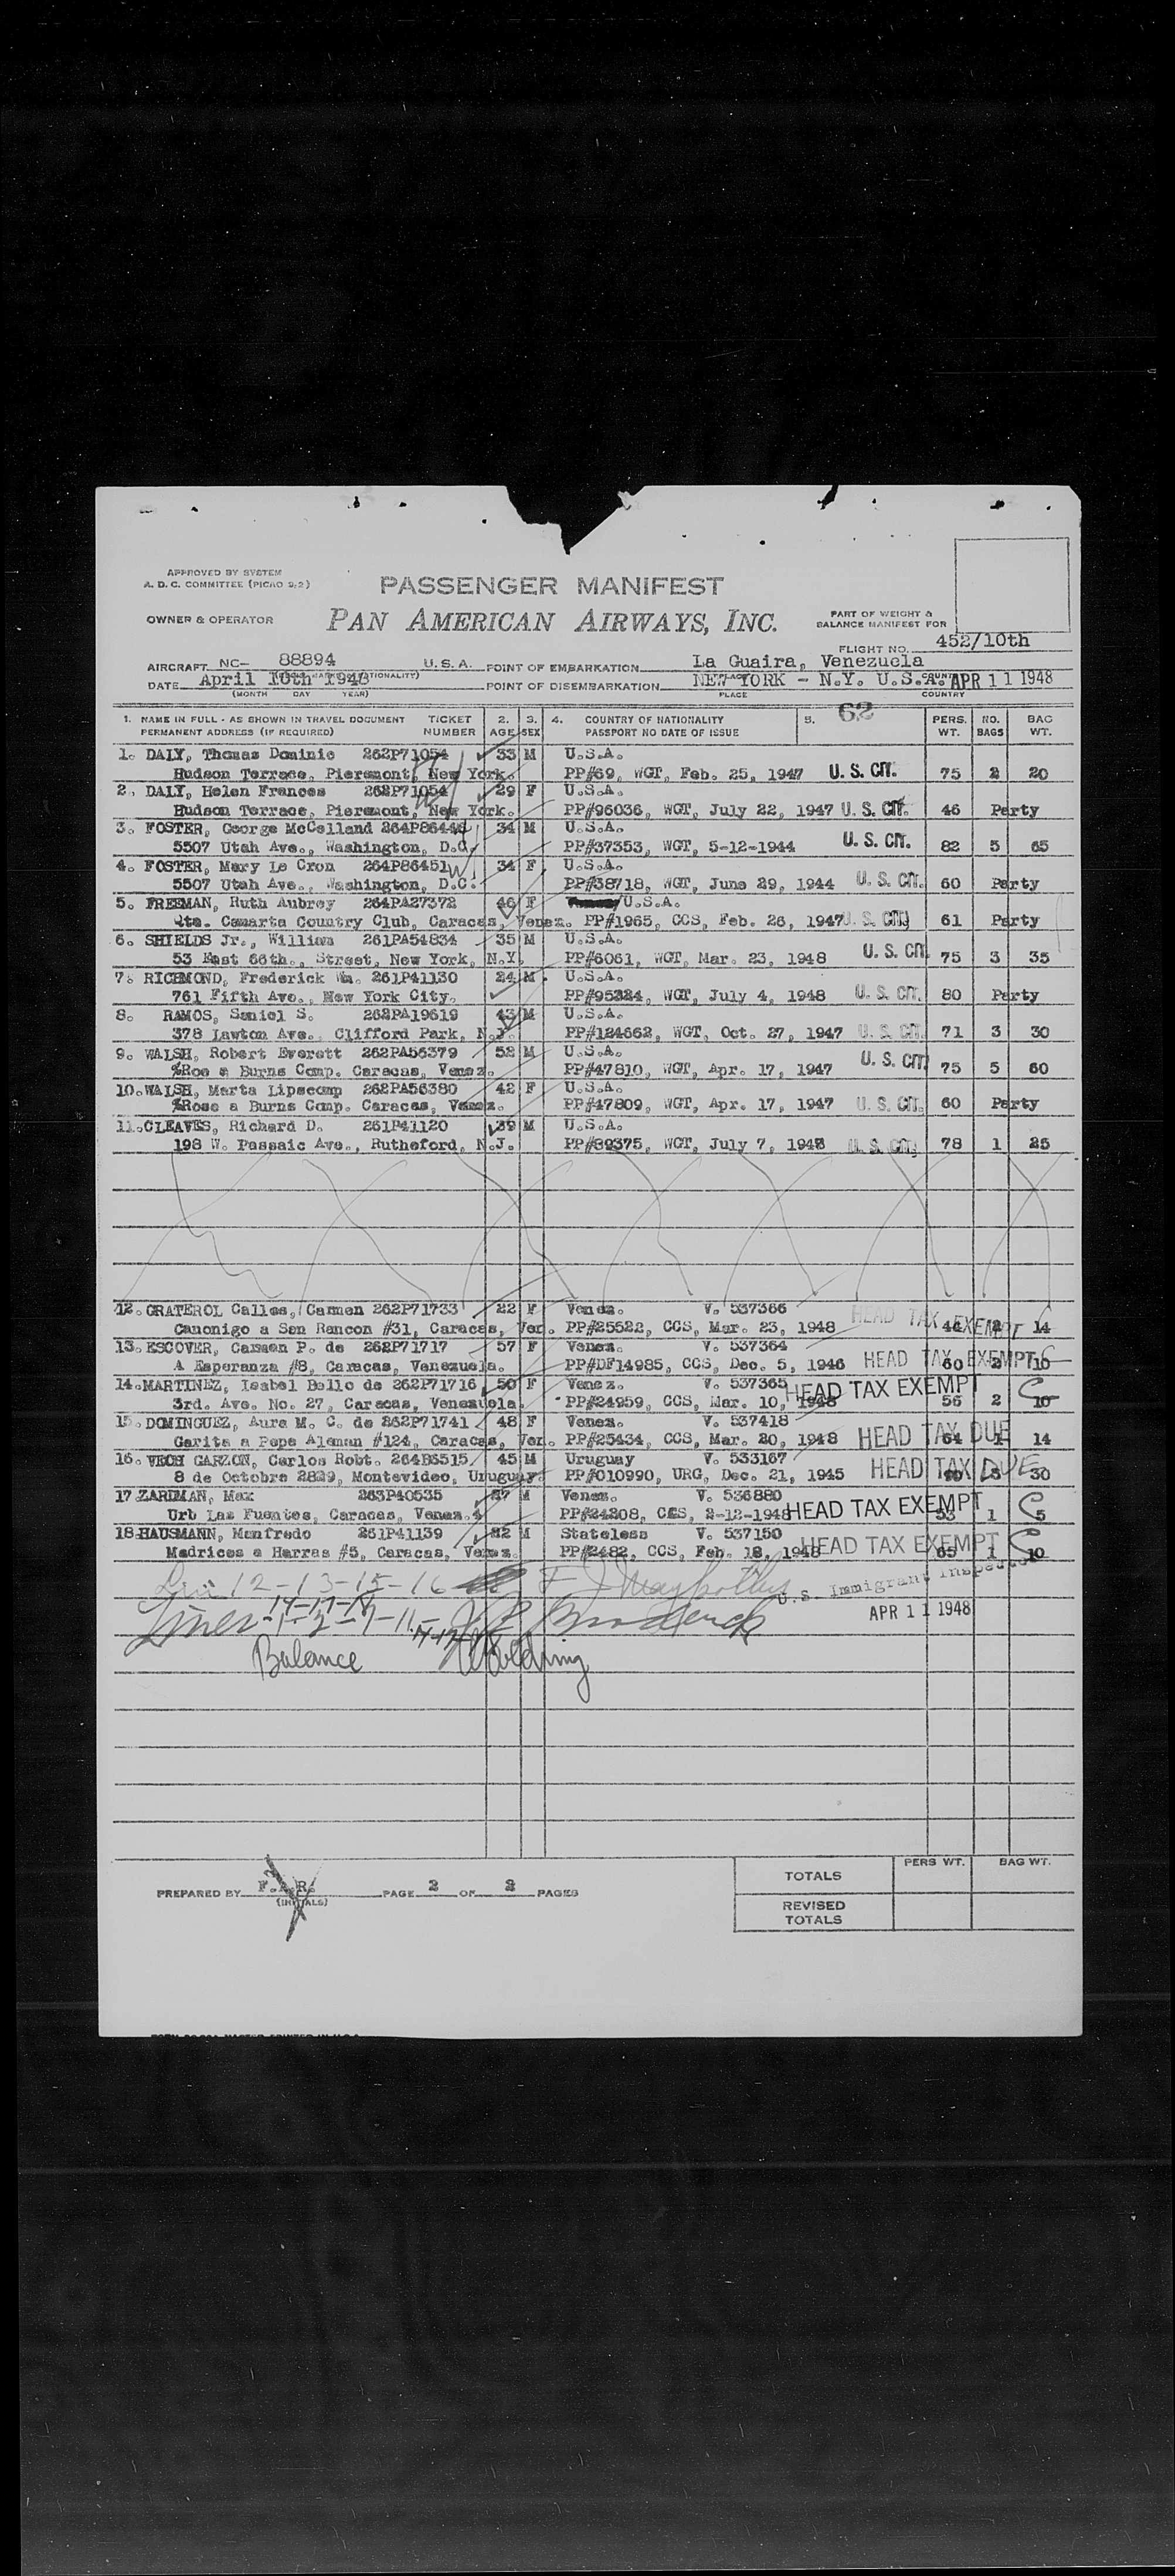 APPROVED BY SYSTEM
A. D. C. COMMITTEE (PICAO 9/2)
PASSENGER MANIFEST
OWNER & OPERATOR
PAN AMERICAN AIRWAYS, INC.
PART OF WEIGHT &
BALANCE MANIFEST FOR
FLIGHT NO. 452/10th
AIRCRAFT NC- 88894 U.S.A. POINT OF EMBARKATION La Guaira, Venezuela
DATE April 10th 1948 POINT OF DISEMBARKATION NEW YORK - N.Y. U.S.A. APR 11 1948
(MONTH DAY YEAR) PLACE COUNTRY
62
1. NAME IN FULL - AS SHOWN IN TRAVEL DOCUMENT TICKET 2. 3. 4. COUNTRY OF NATIONALITY 5. PERS. NO. BAG
PERMANENT ADDRESS (IF REQUIRED) NUMBER AGE SEX PASSPORT NO DATE OF ISSUE WT. BAGS WT.
1. DALY, Thomas Dominic 262P71054 33 M U.S.A.
Hudson Terrace, Piermont, New York. PP#69, WGT, Feb. 25, 1947 U. S. CIT. 75 2 20
2. DALY, Helen Frances 262P71054 29 F U.S.A.
Hudson Terrace, Pieremont, New York. PP#96036, WGT, July 22, 1947 U. S. CIT. 46 Party
3. FOSTER, George McCelland 34 M U.S.A.
5507 Utah Ave., Washington, D.C. PP#37353, WGT, 5-12-1944 U. S. CIT. 82 5 65
4. FOSTER, Mary Le Cron 264P86451 34 F U.S.A.
5507 Utah Ave., Washington, D.C. PP#38718, WGT, June 29, 1944 U. S. CIT. 60 Party
5. FREEMAN, Ruth Aubrey 264PA27372 46 F U.S.A.
Qta. Camarta Country Club, Caracas, Venez. PP#1965, CCS, Feb. 26, 1947 U. S. CIT. 61 Party
6. SHIELDS Jr., William 261PA54834 35 M U.S.A.
53 East 66th., Street, New York, N.Y. PP#6061, WGT, Mar. 23, 1948 U. S. CIT. 75 3 35
7. RICHMOND, Frederick Wm. 261P41130 24 M U.S.A.
761 Fifth Ave., New York City. PP#95324, WGT, July 4, 1948 U. S. CIT. 80 Party
8. RAMOS, Saniel S. 262PA19619 43 M U.S.A.
378 Lawton Ave., Clifford Park, N.J. PP#124662, WGT, Oct. 27, 1947 U. S. CIT. 71 3 30
9. WALSH, Robert Everett 262PA56379 52 M U.S.A.
%Roe a Burns Comp. Caracas, Venez. PP#47810, WGT, Apr. 17, 1947 U. S. CIT. 75 5 60
10. WALSH, Marta Lipscomp 262PA56380 42 F U.S.A.
%Rose a Burns Comp. Caracas, Venez. PP#47809, WGT, Apr. 17, 1947 U. S. CIT. 60 Party
11. CLEAVES, Richard D. 261P41120 39 M U.S.A.
198 W. Passaic Ave., Rutheford, N.J. PP#89375, WGT, July 7, 1948 U. S. CIT. 78 1 25
12. GRATEROL Calles, Carmen 262P71733 22 F Venez. V. 537366
Canonigo a San Rancon #31, Caracas, Ven. PP#25522, CCS, Mar. 23, 1948 HEAD TAX EXEMPT 44 2 14
13. ESCOVER, Carmen P. de 262P71717 57 F Venez. V. 537364
A Esperanza #8, Caracas, Venezuela. PP#DF14985, CCS, Dec. 5, 1946 HEAD TAX EXEMPT 60 2 10
14. MARTINEZ, Isabel Bello de 262P71716 50 F Venez. V. 537365
3rd. Ave. No. 27, Caracas, Venezuela. PP#24959, CCS, Mar. 10, 1948 HEAD TAX EXEMPT 56 2 10
15. DOMINGUEZ, Aura M. C. de 262P71741 48 F Venez. V. 537418
Garita a Pepe Aleman #124, Caracas, Ven. PP#25434, CCS, Mar. 20, 1948 HEAD TAX DUE 64 1 14
16. VECH GARZON, Carlos Robt. 264P86515 45 M Uruguay V. 533167
8 de Octobre 2829, Montevideo, Uruguay PP#010990, URG, Dec. 21, 1945 HEAD TAX DUE 3 30
17 ZARDMAN, Max 263P40535 27 M Venez. V. 536880
Urb Las Fuentes, Caracas, Venez. PP#24208, CCS, 2-12-1948 HEAD TAX EXEMPT 53 1 5
18. HAUSMANN, Manfredo 261P41139 22 M Stateless V. 537150
Madrices a Harras #5, Caracas, Venez. PP#2482, CCS, Feb. 18, 1948 HEAD TAX EXEMPT 65 1 10
12-13-15-16
U.S. Immigrant Inspector
14-17-18
Lines 1-2-7-11
APR 11 1948
Balance
PREPARED BY F.A.R. PAGE 2 OF 2 PAGES
(INITIALS)
PERS WT. BAG WT.
TOTALS
REVISED
TOTALS